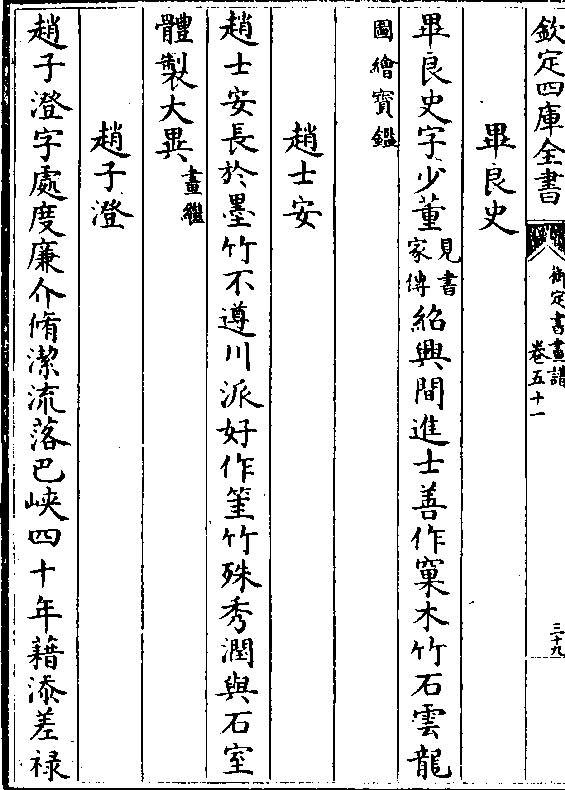 欽定四庫全書
御定書畫譜
卷五十一
三十九
畢良史
畢良史字少董見書家傳紹興間進士善作窠木竹石雲龍
圖繪寶鑑
趙士安
趙士安長於墨竹不遵川派好作筀竹殊秀潤與石室
體製大異畫繼
趙子澄
趙子澄字處度廉介脩潔流落巴峽四十年藉添差禄